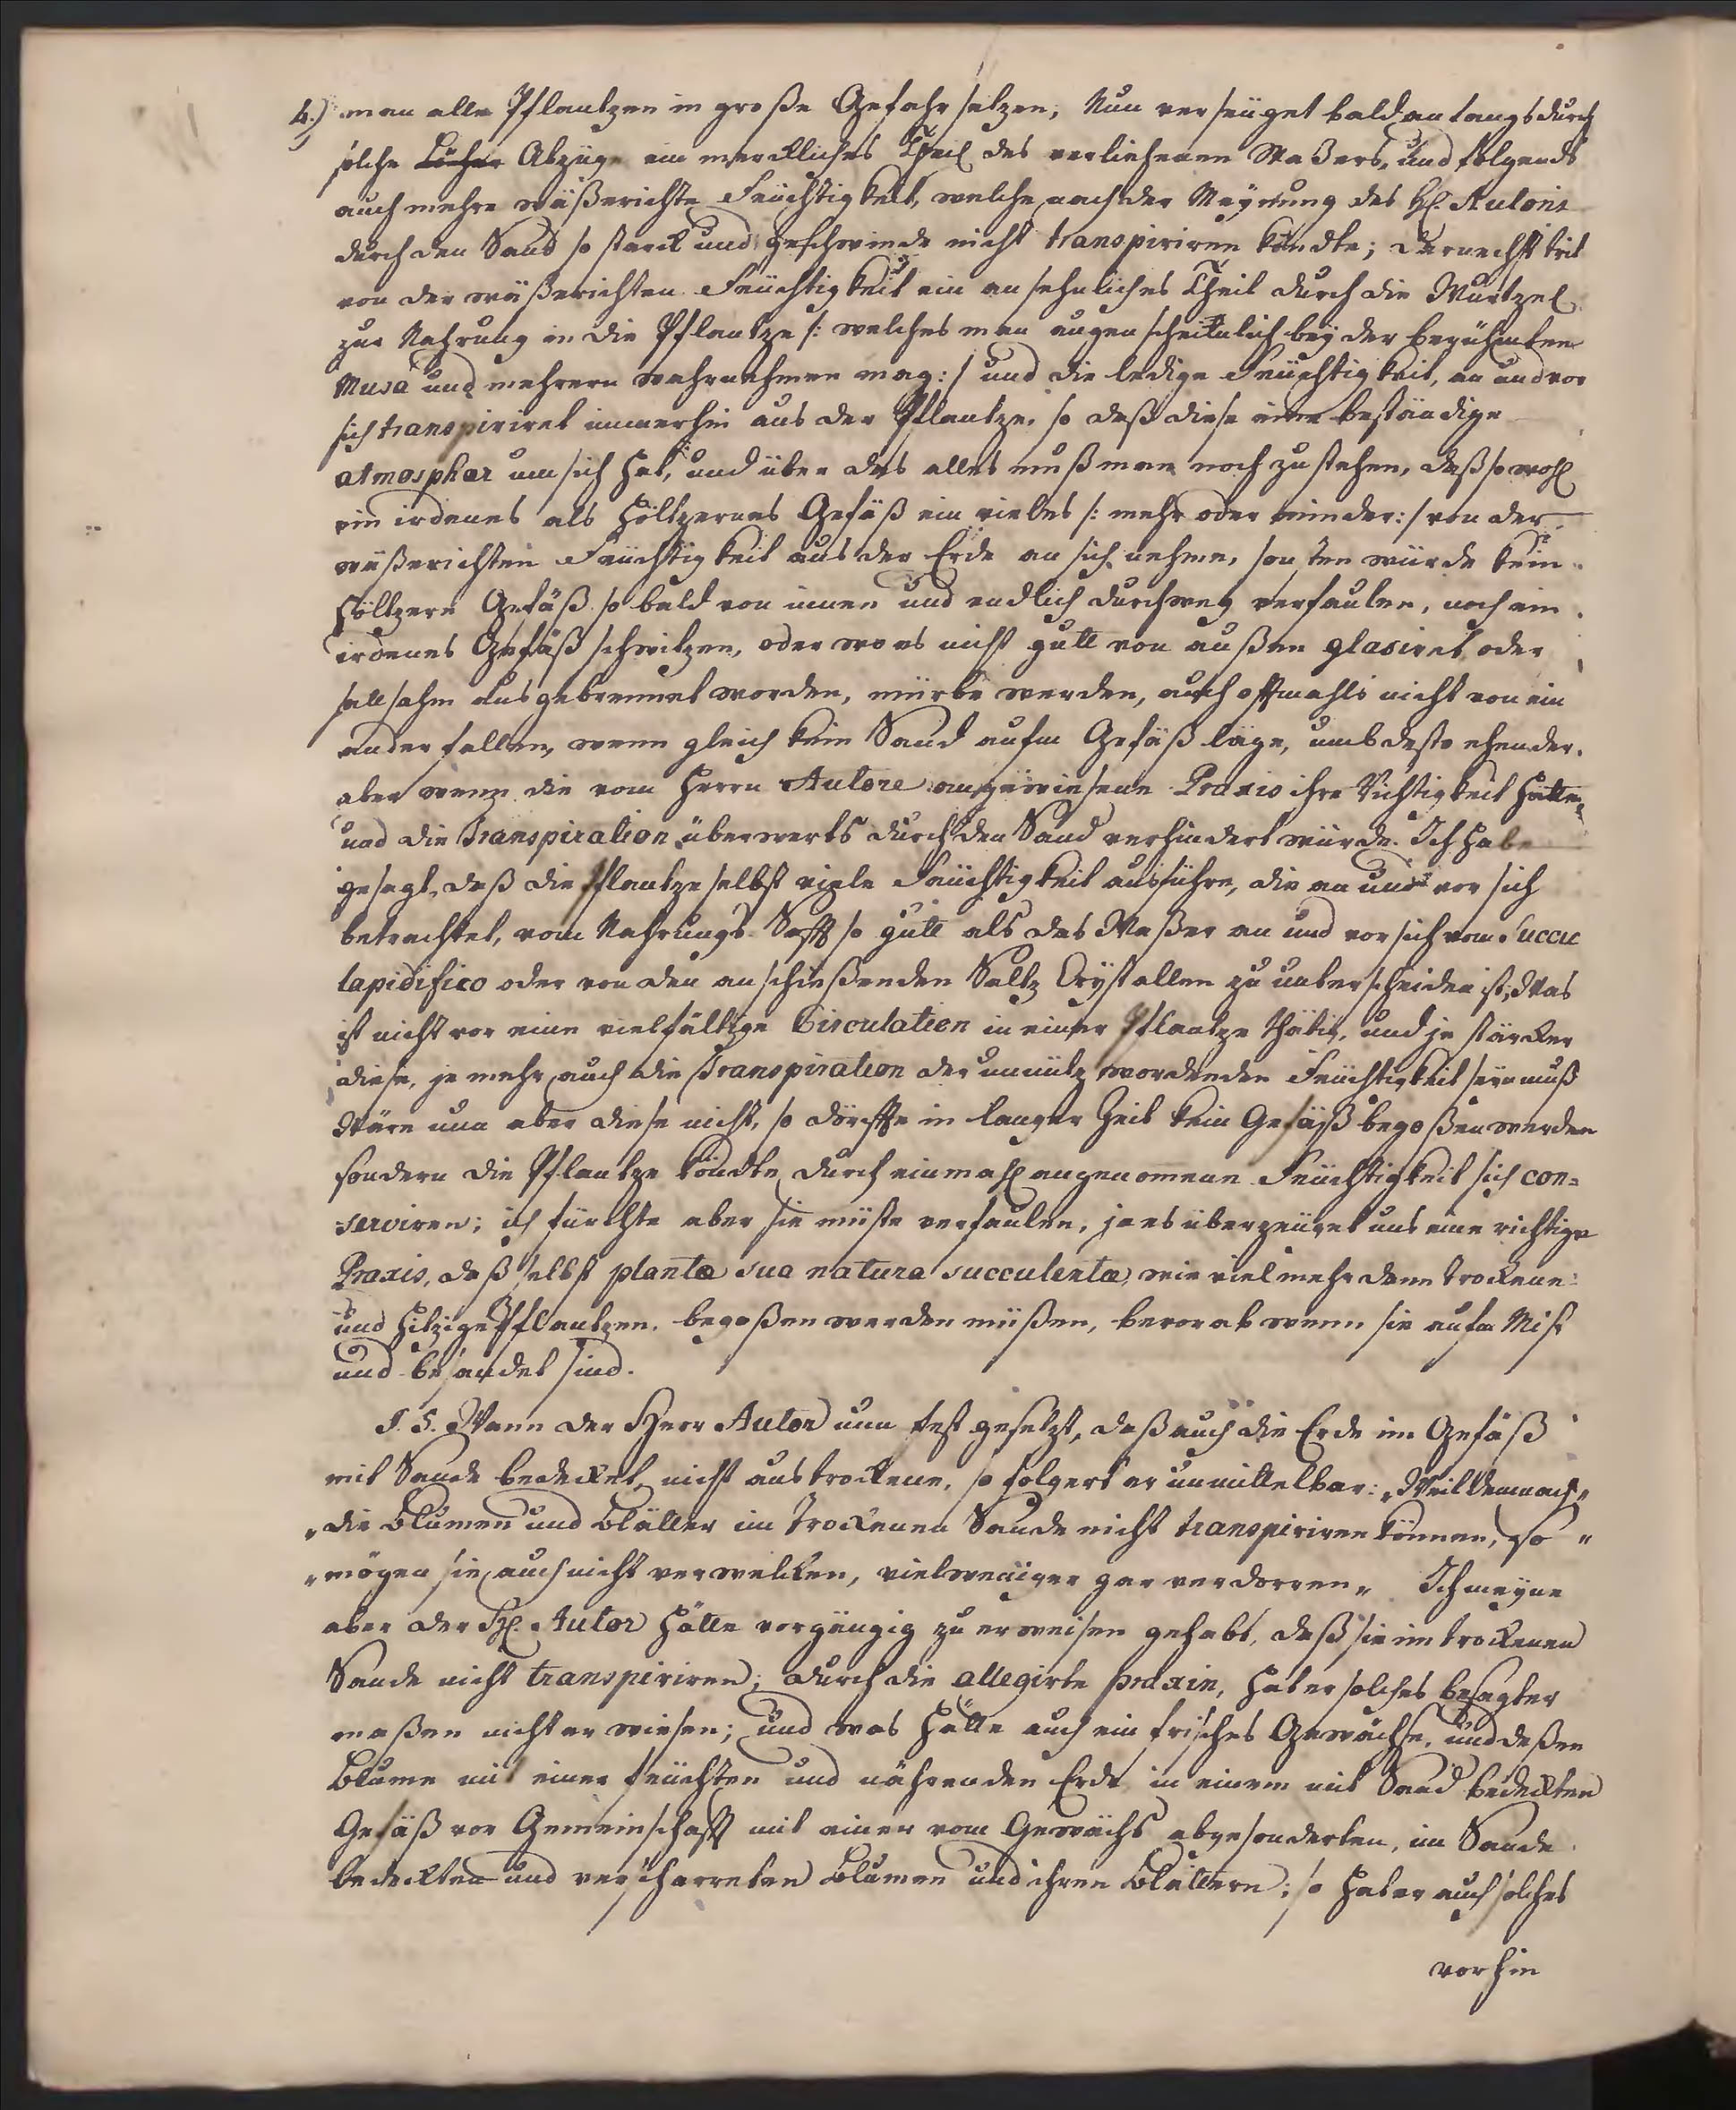 4.) man alle Pflantzen in große Gefahr setzen; Nun verseüget bald anfangs durch
solche Löcher Abzüge ein merckliches Theil des verliehenen Waßers, und folgends
auch mehre wäßerichte Feüchtigkeit, welche nach der Meynung des H. Autoris
durch den Sand so starck und geschwinde nicht transpiriren köndte; dernechst trit
von der wäßerichten Feüchtigkeit ein ansehnliches Theil durch die Wurtzel
zur Nahrung in die Pflantze /: welches man augenscheinlich bey der berühmten
Musa und mehrern wahrnehmen mag :/ und die ledige Feüchtigkeit, an und vor
sich transpiriret immerhin aus der Pflantze, so daß diese eine beständige
atmosphær um sich hat, und über das alles muß man noch zustehen, daß so wohl
ein irdenes als höltzernes Gefäß ein vieles /: mehr oder minder :/ von der
wäßerichten Feüchtigkeit aus der Erde an sich nehme, sonsten würde kein
höltzern Gefäß so bald von innen und endlich durchweg verfaulen, noch ein
irdenes Gefäß schwitzen, oder wo es nicht gutt von außen glasiret oder
sattsahm ausgebrennet worden, mürbe werden, auch offtmahls nicht von ein
ander fallen, wenn gleich kein Sand aufm Gefäß läge, umb desto ehender,
aber wenn die vom Herrn Autore angewiesene Praxis ihre Richtigkeit hätte,
und die Transpiration überwerts durch den Sand verhindert würde. Ich habe
gesagt, daß die Pflantze selbst viele Feüchtigkeit ausführe, die an und vor sich
betrachtet, vom Nahrungs-Safft so gutt als das Waßer an und vor sich vom Succu
lapidifico oder von den anschießenden Saltz Crystallen zu unterscheiden ist; Was
ist nicht vor eine vielfältige Circulation in einer Pflantze thätig, und je stärcker
diese, je mehr auch die Transpiration der unnütz wordenden Feüchtigkeit seyn muß
Wäre nun aber diese nicht, so dörffte in langer Zeit kein Gefäß begoßen werden
sondern die Pflantze köndte durch einmahl angenomene Feüchtigkeit sich con=
serviren; ich fürchte aber sie müste verfaulen, ja es überzeüget uns eine richtige
Praxis, daß selbst plantæ sua natura succulentæ, wie viel mehr denn trockene
und hitzige Pflantzen, begoßen werden müßen, bevorab wenn sie aufm Mist
und besandet sind.
§. 5. Wann der Herr Autor nun fest gesetzt, daß auch die Erde im Gefäß
mit Sande bedecket, nicht austrockene, so folgert er unmittelbar: „Weil demnach„
„die Blumen und Blätter im trockenen Sande nicht transpiriren können, so „
„mögen sie auch nicht verwelcken, vielweniger gar verdorren„ Ich meyne
aber der H. Autor hätte vorgängig zu erweisen gehabt, daß sie im trockenen
Sande nicht transpiriren; durch die allegirte praxin, hat er solches besagter
maßen nicht erwiesen; und was hätte auch ein frisches Gewächse, und deßen
Blume mit einer feüchten und nährenden Erde in einem mit Sand bedeckten
Gefäß vor Gemeinschafft mit einer vom Gewächs abgesonderten, im Sande
bedeckten und verscharreten Blumen und ihren Blättern; so hat er auch solches
vorhin